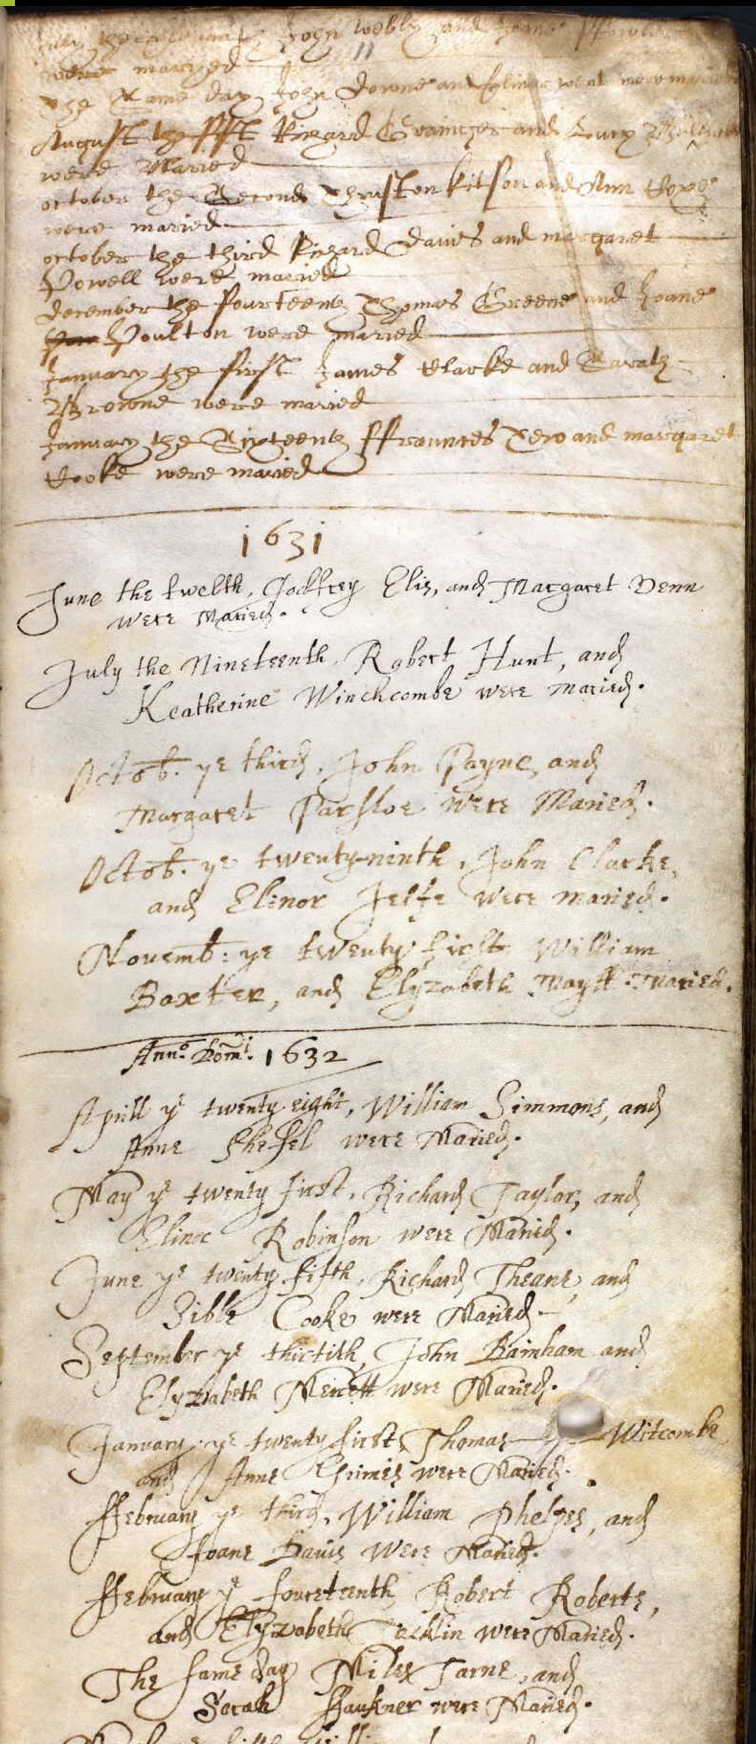 July the John Webly and Joane
were married
The same day John Downe and
August the fift Richard Grainger and Lucy
were Maried
october the Second Christen kitson and Ann
were maried
october the third Richard Davies and margaret
Powell were maried
December the fourteenth Thomas Greene and Joane
Poulton were maried
January the first James Clarke and Sarah
Browne were maried
January the Sixteenth ffraunces and margaret
Cooke were maried
1631
June the twelth, Jeffrey Elis, and Margaret Denn
were Maried.
July the Nineteenth, Robert Hunt, and
Keatherine Winchcombe were Maried.
Octob. ye third, John Payne, and
Margaret Parsloe were Maried.
Octob. ye twenty-ninth, John Clarke,
and Elinor Jelfe were maried.
Novemb: ye twenty first William
Baxter, and Elyzabeth Maried.
Anno Domi. 1632
Aprill ye twenty eight, William Simmons, and
Anne were Maried.
May ye twenty first, Richard Taylor, and
Elinor Robinson were Maried.
June ye twenty fifth, Richard Theane, and
Sible Cooke were Maried
September ye thirtith, John Barnham and
Elyzabeth were Maried.
January ye twenty first, Thomas Witcombe
and Anne were Maried.
ffebruary ye third, William Phelpes, and
Joane Davis were Maried.
ffebruary ye fourteenth Robert Roberts,
and Elyzabeth were Maried.
The same day Miles Tarne, and
Sarah ffaukner were Maried.